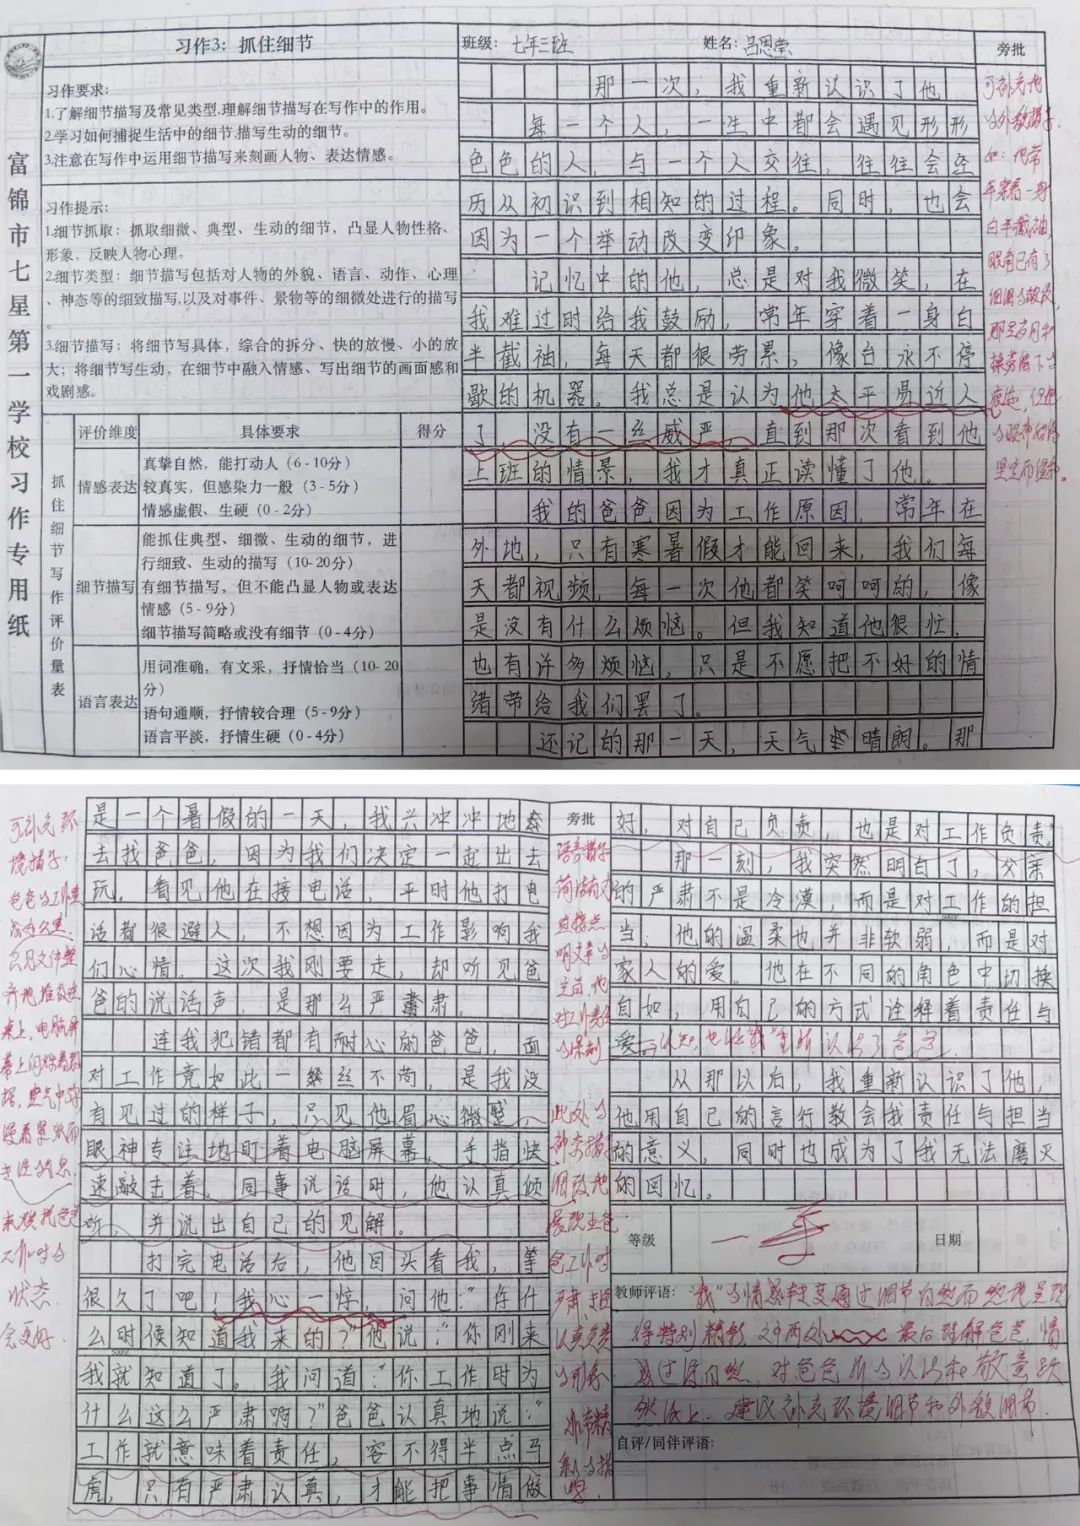 富锦市七星第一学校习作专用纸
习作3：抓住细节
习作要求：
1.了解细节描写及常见类型,理解细节描写在写作中的作用。
2.学习如何捕捉生活中的细节,描写生动的细节。
3.注意在写作中运用细节描写来刻画人物、表达情感。
习作提示：
1.细节抓取：抓取细微、典型、生动的细节，凸显人物性格、
形象，反映人物心理。
2.细节类型：细节描写包括对人物的外貌、语言、动作、心理
、神态等的细致描写,以及对事件、景物等的细微处进行的描写
。
3.细节描写：将细节写具体，综合的拆分、快的放慢、小的放
大；将细节写生动，在细节中融入情感、写出细节的画面感和
戏剧感。
抓住细节写作评价量表
评价维度 具体要求 得分
情感表达
真挚自然，能打动人（6-10分）
较真实，但感染力一般（3-5分）
情感虚假、生硬（0-2分）
细节描写
能抓住典型、细微、生动的细节，进
行细致、生动的描写（10-20分）
有细节描写，但不能凸显人物或表达
情感（5-9分）
细节描写简略或没有细节（0-4分）
语言表达
用词准确，有文采，抒情恰当（10-20
分）
语句通顺，抒情较合理（5-9分）
语言平淡，抒情生硬（0-4分）
班级：七年三班 姓名：吕恩莹 旁批
那一次，我重新认识了他
每一个人，一生中都会遇见形形
色色的人，与一个人交往，往往会经
历从初识到相知的过程。同时，也会
因为一个举动改变印象。
记忆中的他，总是对我微笑，在
我难过时给我鼓励，常年穿着一身白
半截袖，每天都很劳累，像台永不停
歇的机器。我总是认为他太平易近人
了，没有一丝威严，直到那次看到他
上班的情景，我才真正读懂了他。
我的爸爸因为工作原因，常年在
外地，只有寒暑假才能回来，我们每
天都视频，每一次他都笑呵呵的，像
是没有什么烦恼。但我知道他很忙，
也有许多烦恼，只是不愿把不好的情
绪带给我们罢了。
还记的那一天，天气晴朗。那
可补充他
的外貌描写.
如：他常
年穿着一身
白半截袖,
眼角已有了
细细的皱纹,
那是岁月和
操劳留下的
痕迹，但他
的眼神始终
坚定而温和。
是一个暑假的一天，我兴冲冲地
去找爸爸，因为我们决定一起出去
玩。看见他在接电话，平时他打电
话都很避人，不想因为工作影响我
们心情。这次我刚要走，却听见爸
爸的说话声，是那么严肃。
连我犯错都有耐心的爸爸，面
对工作竟如此一丝不苟，是我没
有见过的样子，只见他眉心微蹙，
眼神专注地盯着电脑屏幕，手指快
速敲击着。同事说话时，他认真倾
听，并说出自己的见解。
打完电话后，他回头看我，等
很久了吧！我心一惊，问他：“你什
么时候知道我来的？”他说：“你刚来
我就知道了。我问道：“你工作时为
什么这么严肃啊？”爸爸认真地说：“
工作就意味着责任，容不得半点马
虎，只有严肃认真，才能把事情做
可补充环
境描写：
爸爸的工作桌
只见文件整
齐地堆放在
桌上，电脑屏
幕上闪烁着数
据，空气中弥
漫着紧张而
来烘托爸爸
工作时的
状态.
会更好
旁批
好，对自己负责，也是对工作负责”
那一刻，我突然明白了，父亲
的严肃不是冷漠，而是对工作的担
当；他的温柔也并非软弱，而是对
家人的爱。他在不同的角色中切换
自如，用自己的方式诠释着责任与
爱。
从那以后，我重新认识了他，
他用自己的言行教会我责任与担当
的意义，同时也成为了我无法磨灭
的回忆。
语言描写
简洁有力
直接点
明文章的
主旨，他
对工作责任
此处的
爸工作时
认真负责
的形象.
等级 日期
教师评语：“我”的情感转变通过细节自然而然地呈现
得特别精彩，文中两处 最后理解爸爸，情
感过渡自然，对爸爸的认识和敬意跃
然纸上，建议补充环境细节和外貌细节.
自评/同伴评语：